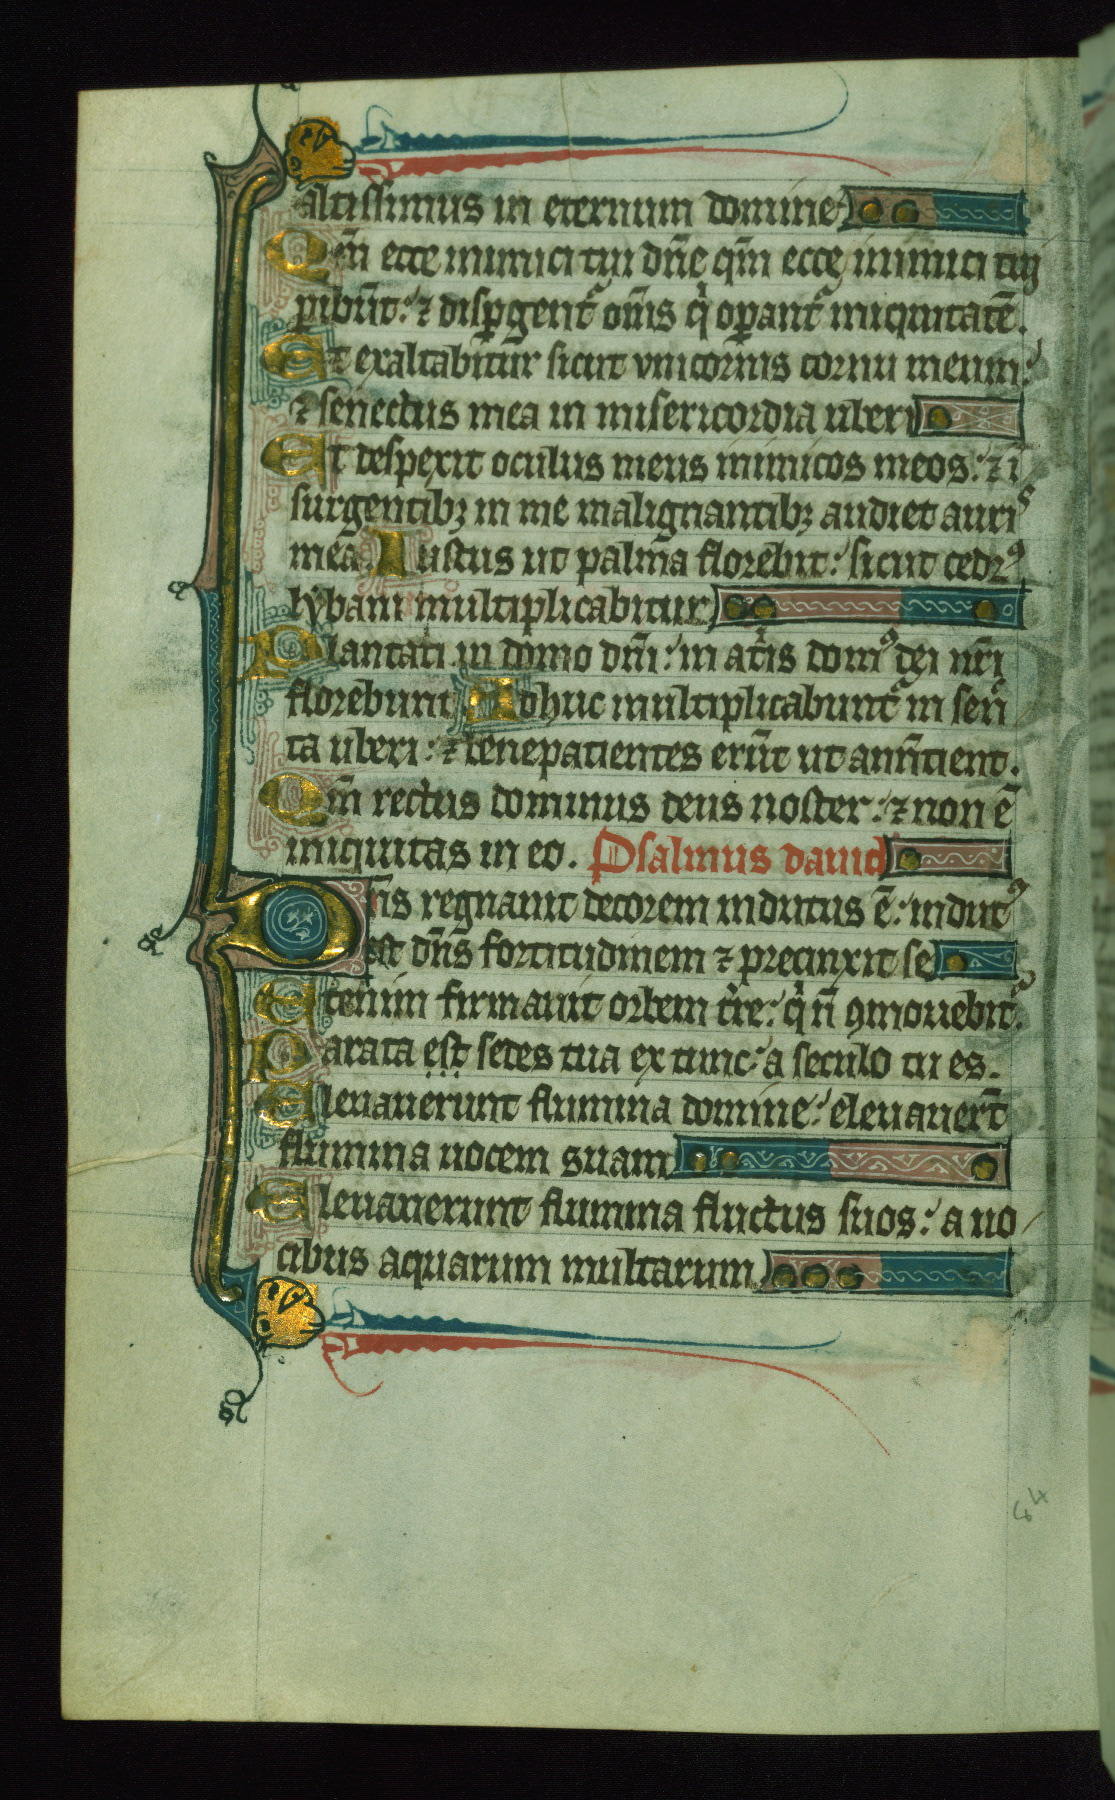 altissimus in eternum domine
Qm̄ ecce inimici tui dn̄e qm̄ ecce inimici tui
ꝑibūt: ⁊ disꝑgent᷑ om̄s qͥ oꝑant᷑ iniquitatē.
Et exaltabitur sicut vnicornis cornu meum:
⁊ senectus mea in misericordia uberi
Et despexit oculus meus inimicos meos: ⁊ ī
surgentibꝫ in me malignantibꝫ audiet auris
mea Iustus ut palma florebit: sicut cedrꝰ
lybani multiplicabitur
Plantati in domo dn̄i: in atͥis domꝰ dei nr̄i
florebunt Adhuc multiplicabunt᷑ in senec
ta uberi: ⁊ benepatientes erūt ut annūtient.
Qm̄ rectus dominus deus noster: ⁊ non ē
iniquitas in eo. Psalmus dauid
Dn̄s regnauit decorem indutus ē: indutꝰ
est dn̄s fortitudinem ⁊ precinxit se
Etenim firmauit orbem t̄re: qͥ n̄ ꝯmouebit᷑.
Parata est sedes tua ex tunc: a seculo tu es.
Eleuauerunt flumina domine: eleuauer̄t
flumina uocem suam
Eleuauerunt flumina fluctus suos: a uo
cibus aquarum multarum
64